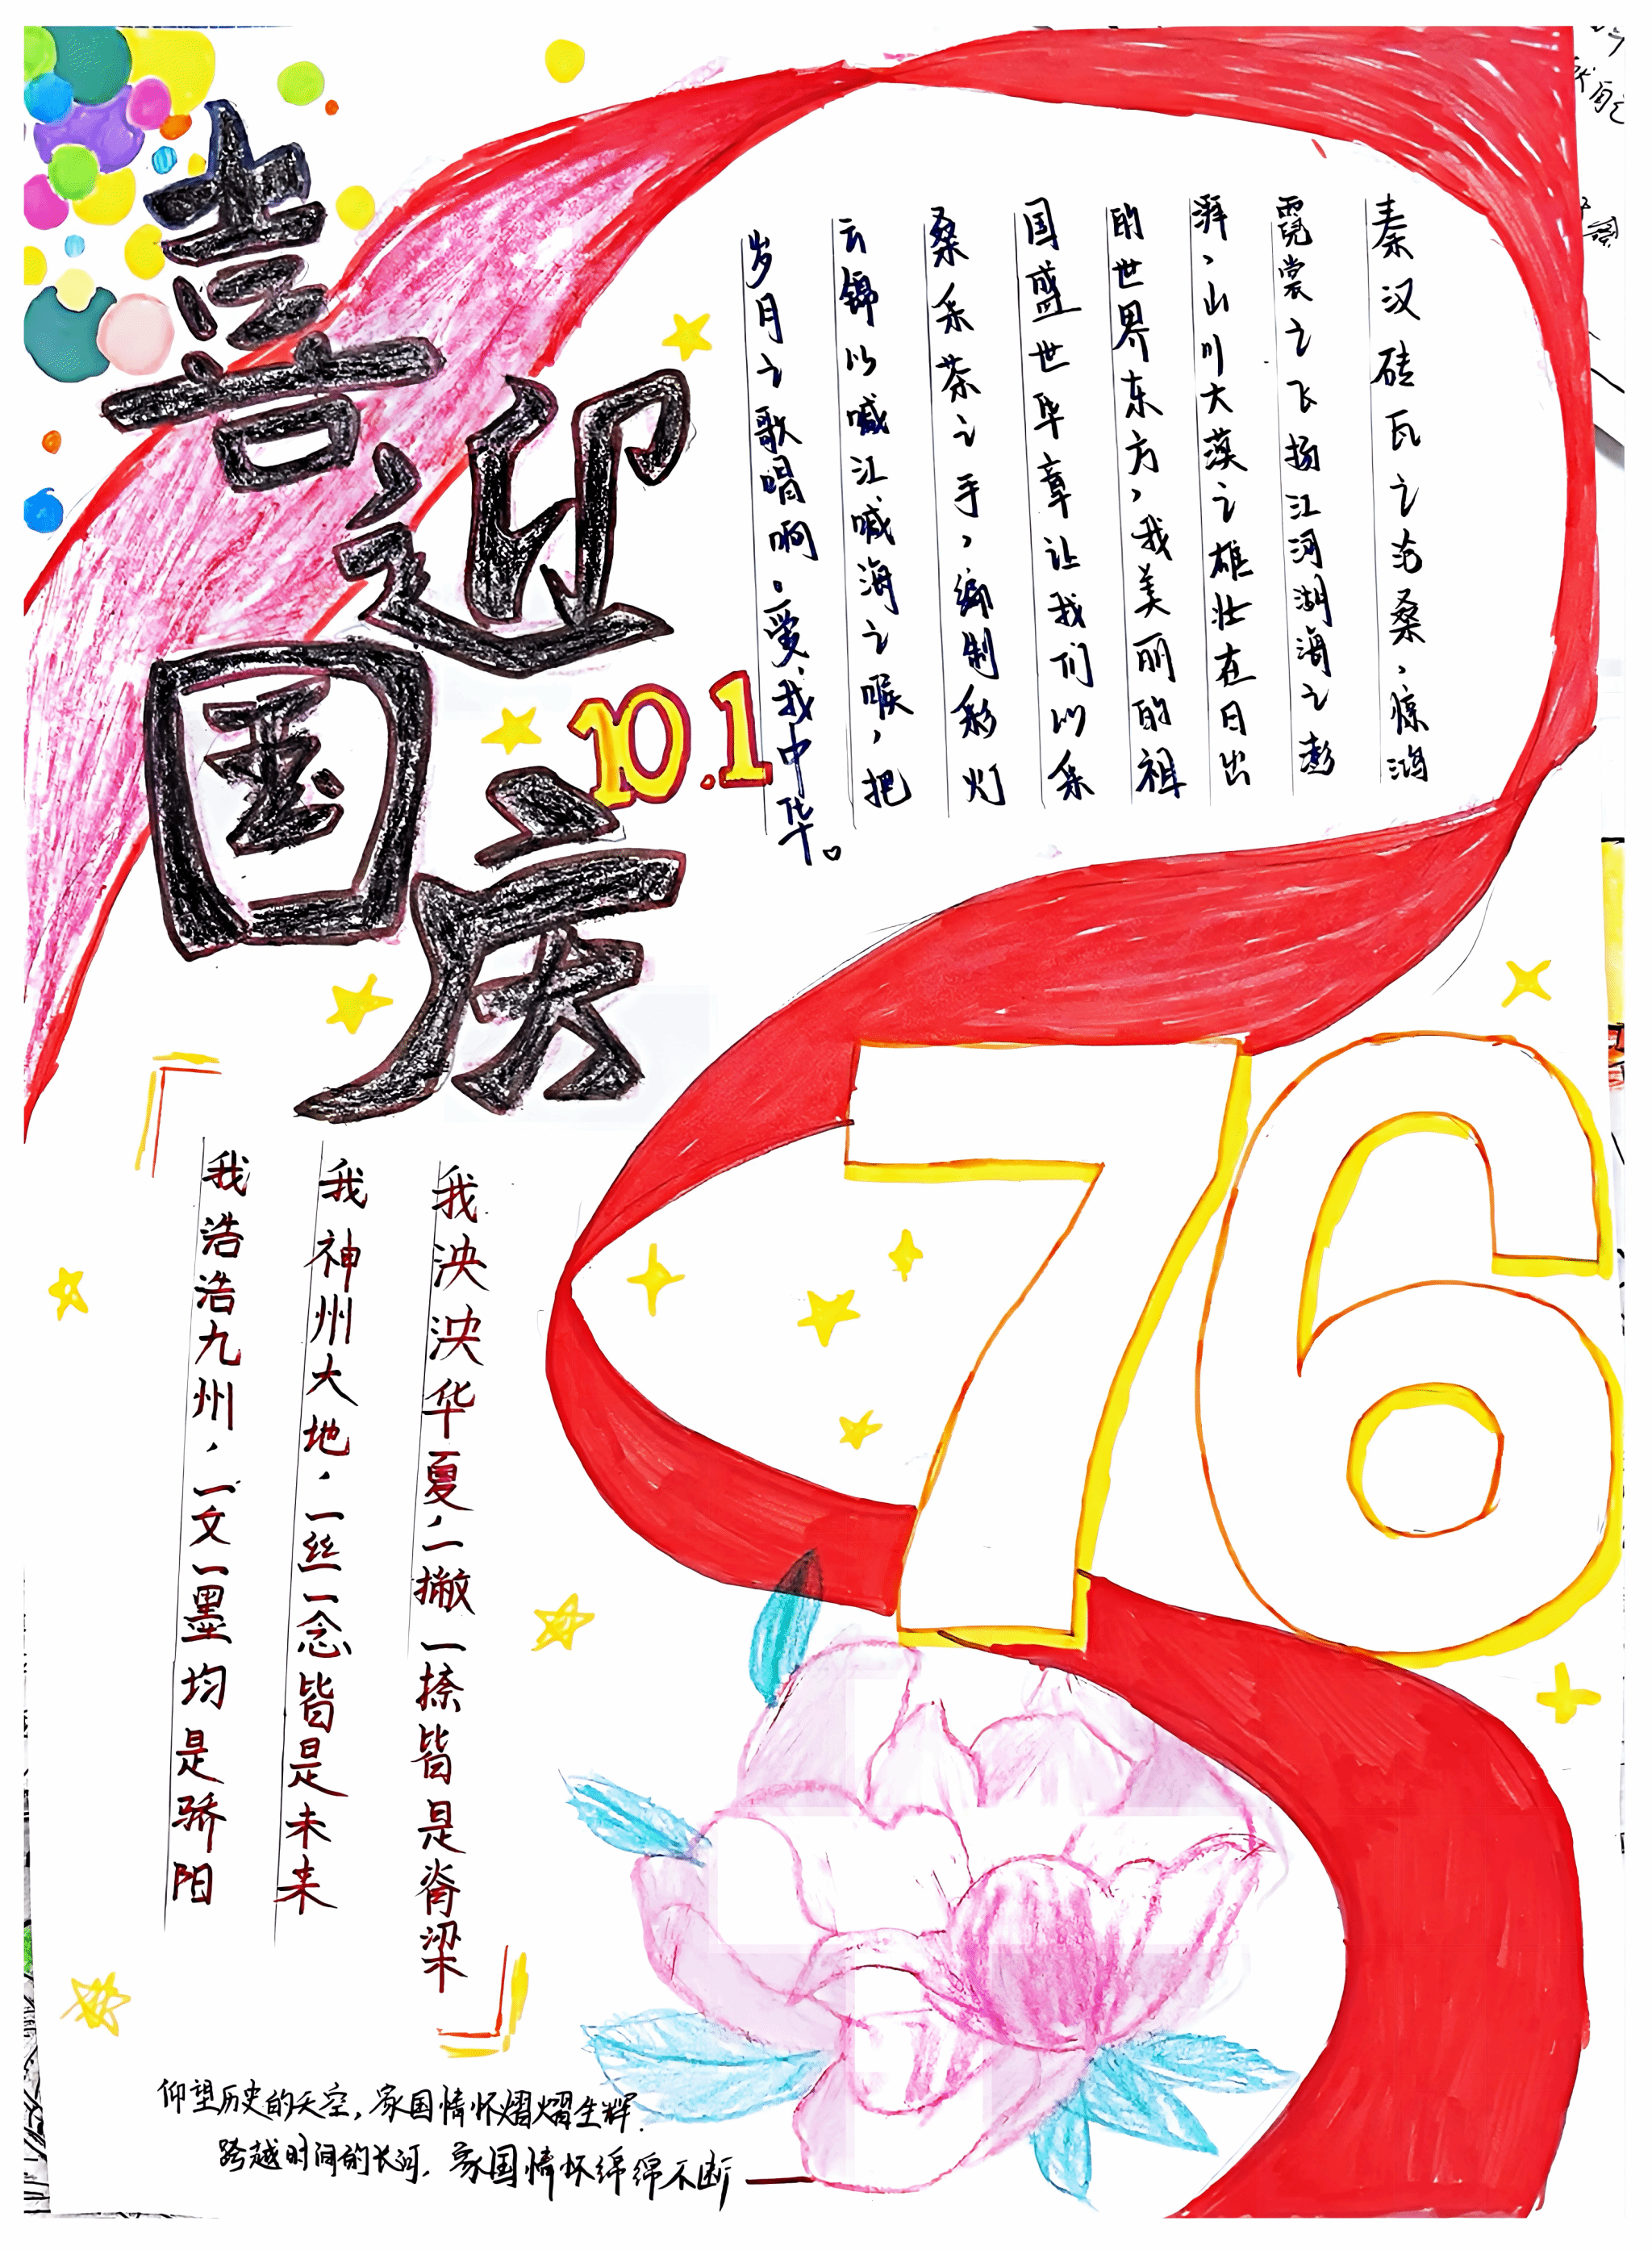 喜迎国庆
10.1
秦汉砖瓦之沧桑，惊鸿
霓裳之飞扬江河湖海之澎
湃，山川大漠之雄壮在日出
的世界东方，我美丽的祖
国盛世华章让我们以采
桑采茶之手，编制彩灯
云锦以喊江喊海之喉，把
岁月之歌唱啊。爱我中华。
76
我泱泱华夏，一撇一捺皆是脊梁
我神州大地，一丝一念皆是未来
我浩浩九州，一文一墨均是骄阳
仰望历史的天空，家国情怀熠熠生辉.
跨越时间的长河，家国情怀绵绵不断——